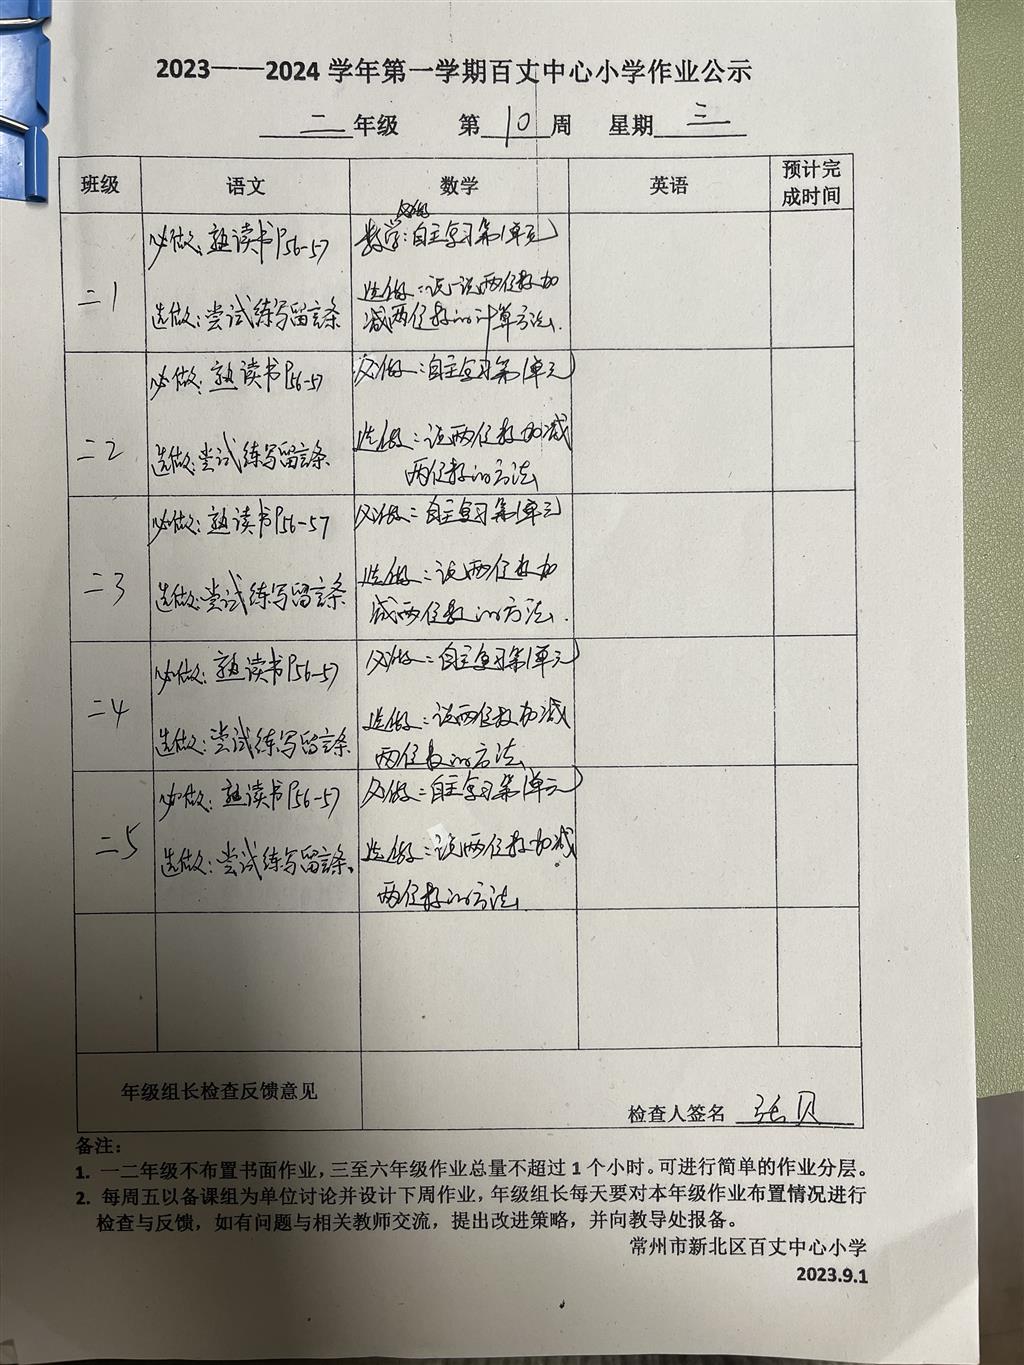 2023——2024 学年第一学期百丈中心小学作业公示
二 年级 第 10 周 星期 三
班级 语文 数学 英语 预计完
成时间
必做
必做：熟读书P56-57 数学：自主复习第1单元
二1
选做：尝试练写留言条 选做：说一说两位数加
减两位数的计算方法.
必做：熟读书P56-57 必做：自主复习第1单元
二2
选做：尝试练写留言条 选做：说两位数加减
两位数的方法
必做：熟读书P56-57 必做：自主复习第1单元
二3
选做：尝试练写留言条 选做：说两位数加
减两位数的方法.
必做：熟读书P56-57 必做：自主复习第1单元
二4
选做：尝试练写留言条 选做：说两位数加减
两位数的方法
必做：熟读书P56-57 必做：自主复习第1单元
二5
选做：尝试练写留言条、 选做：说两位数加减
两位数的方法
年级组长检查反馈意见
检查人签名 张贝
备注：
1. 一二年级不布置书面作业，三至六年级作业总量不超过 1 个小时。可进行简单的作业分层。
2. 每周五以备课组为单位讨论并设计下周作业，年级组长每天要对本年级作业布置情况进行
检查与反馈，如有问题与相关教师交流，提出改进策略，并向教导处报备。
常州市新北区百丈中心小学
2023.9.1